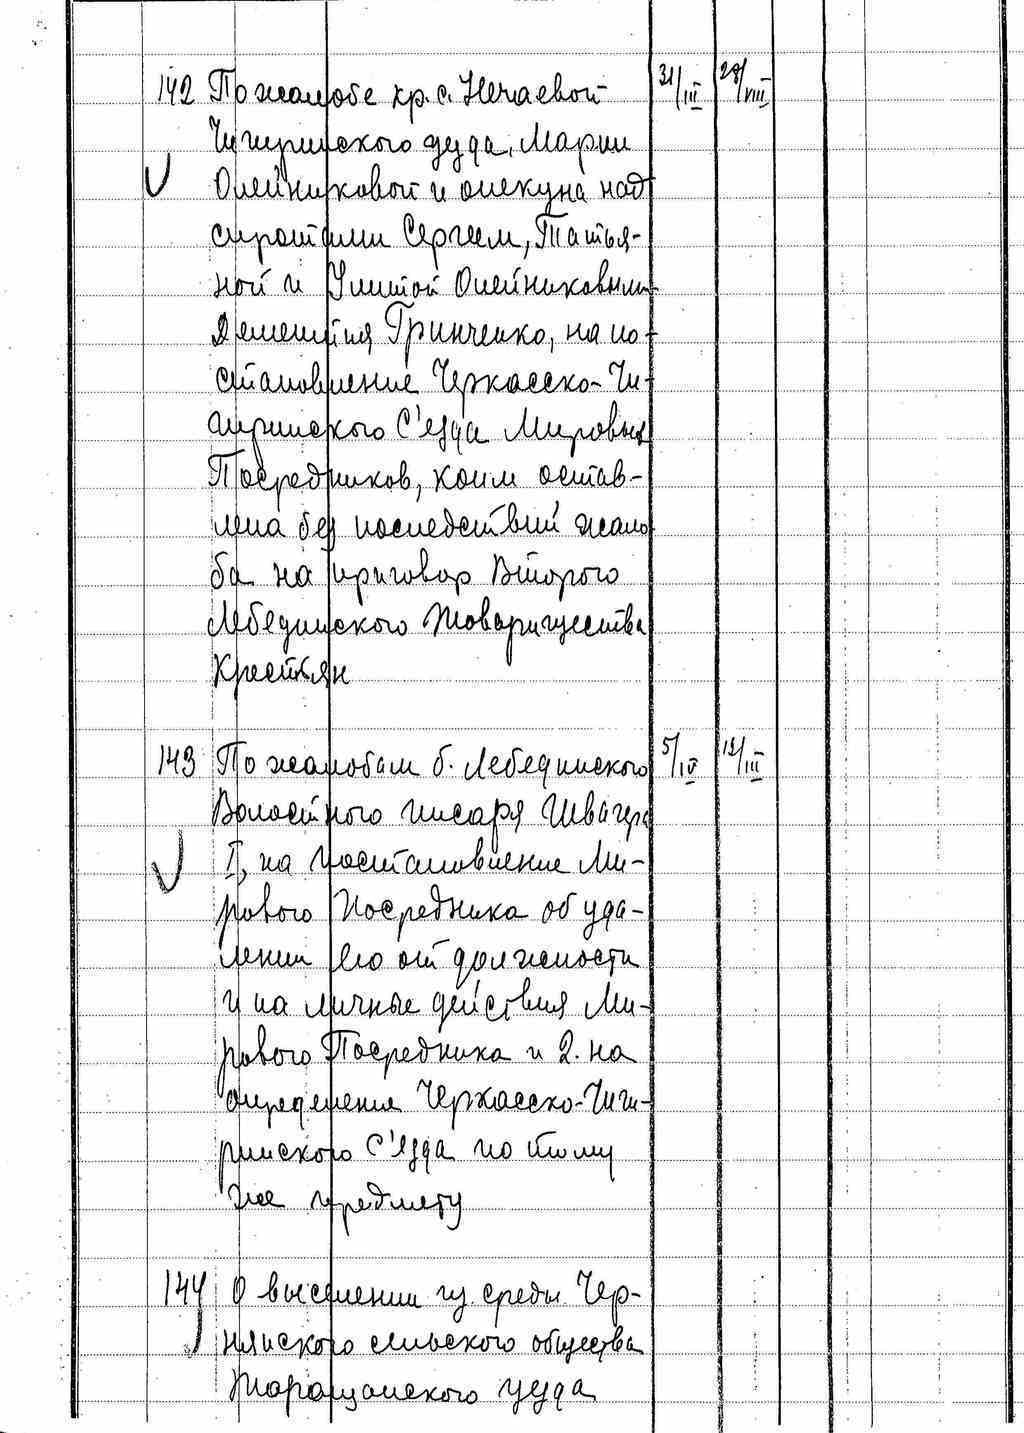 142 По жалобе кр. с. Нечаевой 31/III 28/VIII
Чигиринского уезда, Марии
Олейниковой и опекуна над
сиротами Сергеем, Татья-
ной и Улитой Олейниковыми
Дементия Гринченко, на по-
становление Черкасско-Чи-
гиринского С'езда Мировых
Посредников, коим остав-
лена без последствий жало
ба на приговор Второго
Лебединского Товарищества
Крестьян
143 По жалобам б. Лебединского 5/IV 12/III
Волостного писаря Швагера
I, на постановление Ми-
рового Посредника об уда-
лении его от должности
и на личные действия Ми-
рового Посредника и 2. на
определения Черкасско-Чиги-
ринского С'езда по тому
же предмету
144 О выселении из среды Чер-
нянского сельского общества
Таращанского уезда